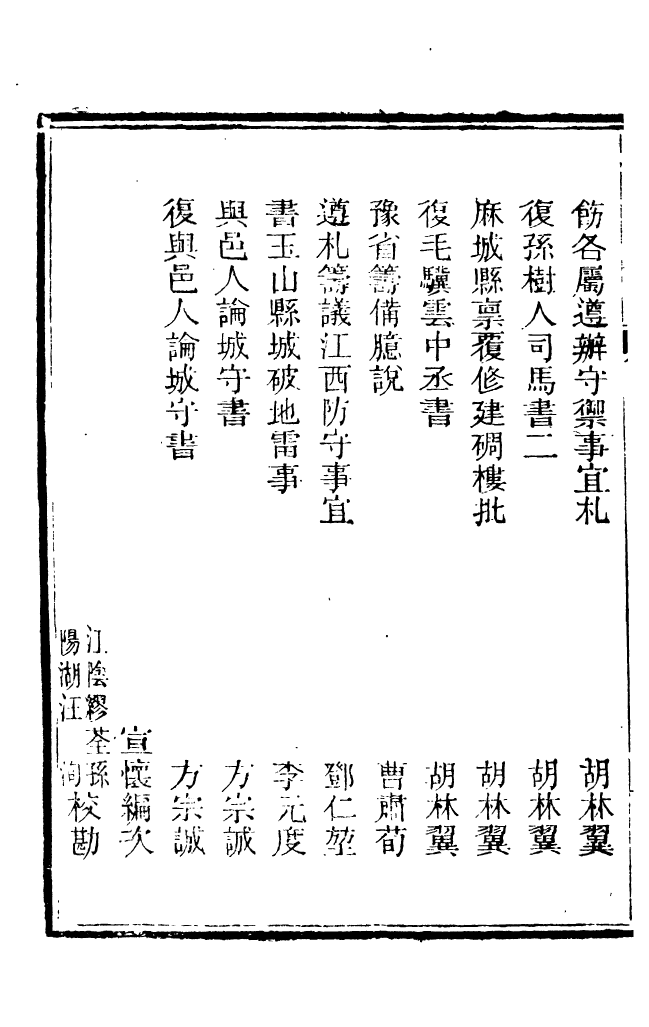 飭各屬遵辦守禦事宜札　胡林翼
復孫樹人司馬書二　胡林翼
麻城縣禀覆修建碉樓批　胡林翼
復毛驥雲中丞書　胡林翼
豫省籌備臆說　曹肅荀
遵札籌議江西防守事宜　鄧仁堃
書玉山縣城破地雷事　李元度
與邑人論城守書　方宗誠
復與邑人論城守書　方宗誠
宣懷編次
江陰繆荃孫
陽湖汪　洵校勘